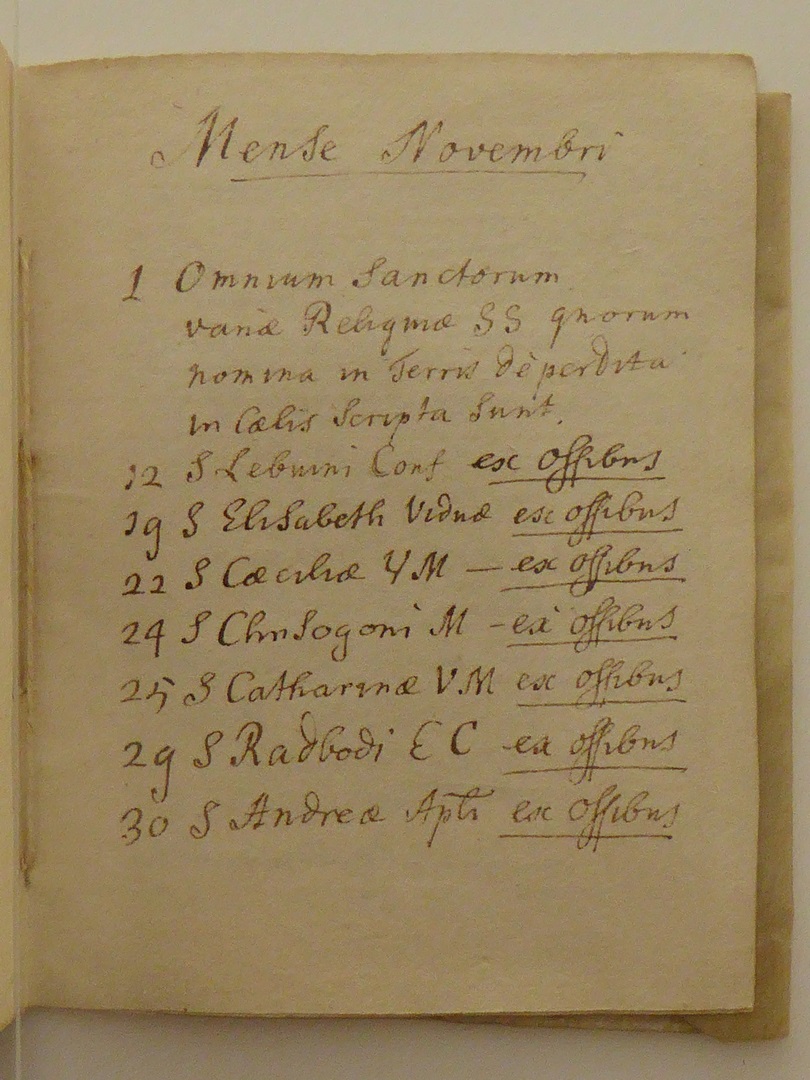 Mense Novembri
1 Omnium Sanctorum
variæ Reliquiæ SS quorum
nomina in Terris dèperdita
in Cælis Scripta Sunt.
12 S Lebuini Conf ex ossibus
19 S Elisabeth Viduæ ex ossibus
22 S Cæciliæ V M — ex ossibus
24 S Chrisogoni M - ex ossibus
25 S Catharinæ V.M ex ossibus
29 S Radbodi E C ex ossibus
30 S Andreæ Apli ex ossibus